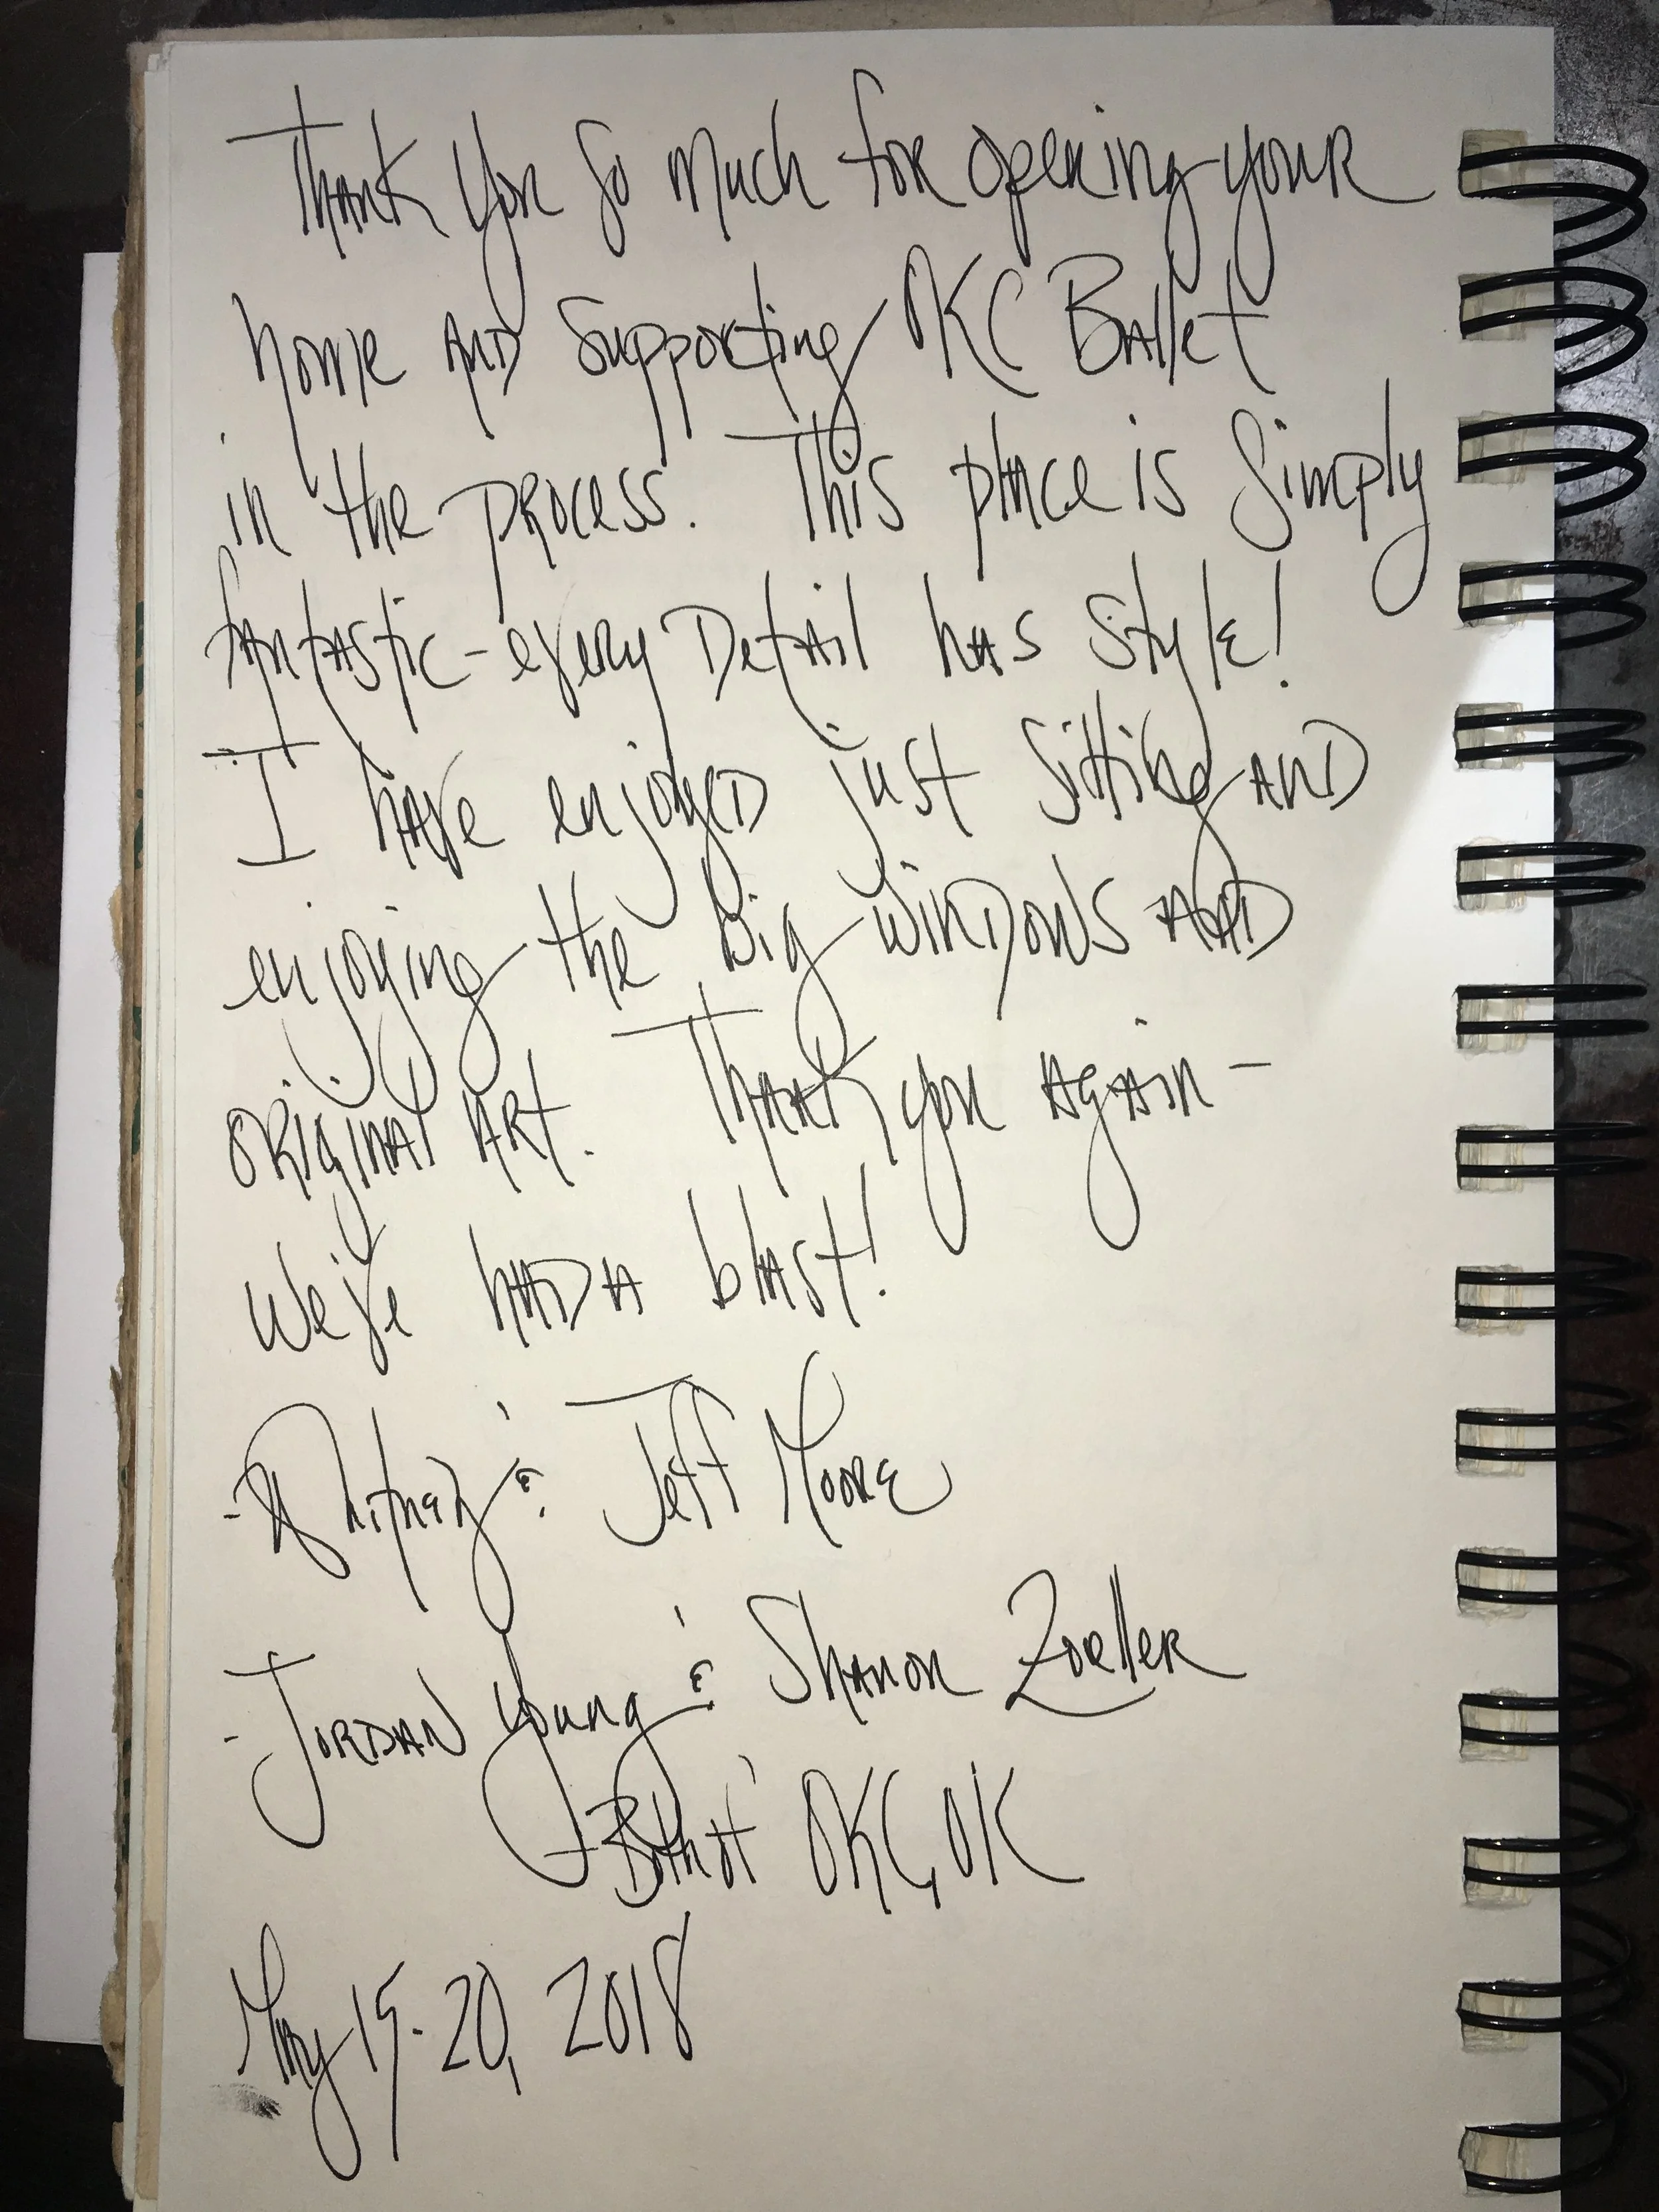 Thank you so much for opening your
home and supporting OKC Ballet
in the process. This place is simply
fantastic - every detail has style!
I have enjoyed just sitting and
enjoying the big windows and
original art. Thank you again -
We've had a blast!
- Whitney & Jeff Moore
- Jordan Young & Shanon Zoeller
- Both of OKC, OK
May 15-20, 2018